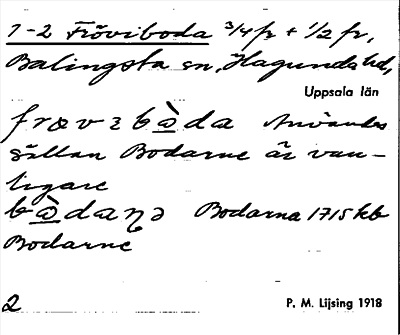 1-2 Fröviboda 3/4 fr + 1/2 fr,
Balingsta sn, Hagunda hd,
Uppsala län
frœvɛbɷ̀da Användes
sällan Bodarne är van-
ligare
bɷ̀daɳə Bodarna 1715 kb
Bodarne
2
P. M. Lijsing 1918